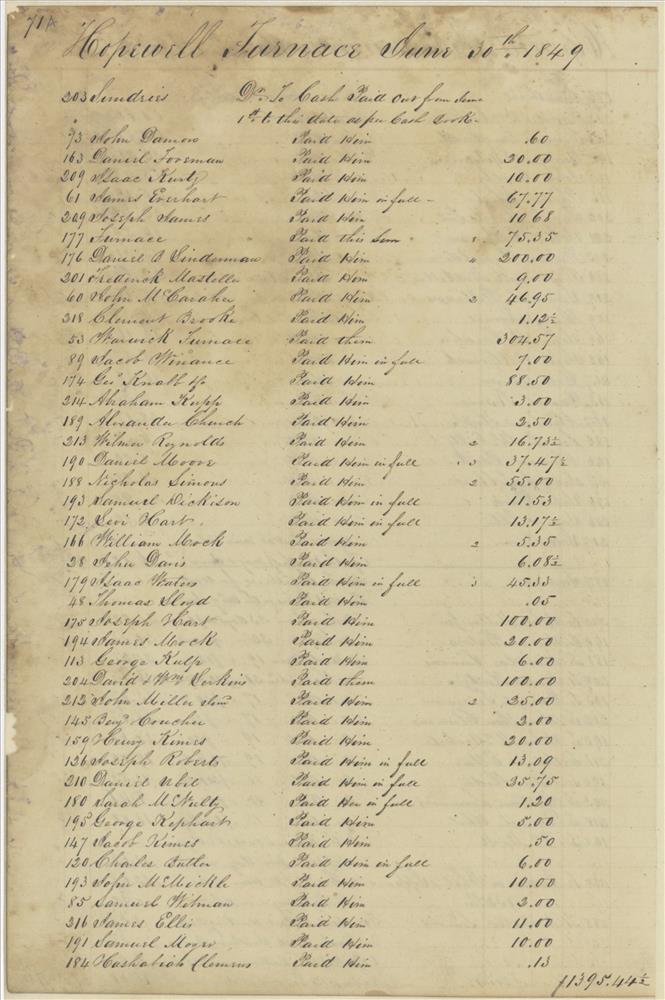 71A
Hopewell Furnace June 30th 1849
203 Sundries Drs To Cash Paid out from June
1st to this date as per Cash Book
93 John Damon Paid Him .60
163 Daniel Foreman Paid Him 20.00
209 Isaac Kurtz Paid Him 10.00
61 James Everhart Paid Him in full 67.77
209 Joseph James Paid Him 10 68
177 Furnace Paid this Sum 75.35
176 Daniel B Linderman Paid Him 200.00
201 Frederick Mastella Paid Him 9.00
60 John McCaraher Paid Him 2 46.95
218 Clement Brooke Paid Him 1.12½
53 Warwick Furnace Paid them 304.57
89 Jacob Winance Paid Him in full 7.00
174 Geo Knabb Paid Him 88.50
214 Abraham Kupp Paid Him 3.00
189 Alexander Church Paid Him 2.50
213 Wilmer Reynolds Paid Him 2 16.73½
190 Daniel Moore Paid Him in full 3 37.47½
188 Nicholas Simons Paid Him 2 55.00
193 Samuel Dickison Paid Him in full 11.53
172 Levi Hart Paid Him in full 13.17½
166 William Mock Paid Him 2 5.35
28 John Davis Paid Him 6.08½
179 Isaac Waters Paid Him in full 3 45.33
48 Thomas Lloyd Paid Him .05
175 Joseph Hart Paid Him 100.00
194 James Mock Paid Him 20.00
113 George Kulp Paid Him 6.00
204 David & Wm Jerkins Paid them 100.00
212 John Miller Paid Him 2 25.00
145 Benj Coucher Paid Him 2.00
159 Henry Kimes Paid Him 20.00
126 Joseph Roberts Paid Him in full 13.09
210 Daniel Ubil Paid Him in full 35.75
180 Sarah McNulty Paid Her in full 1.20
195 George Kephart Paid Him 5.00
147 Jacob Kimes Paid Him .50
120 Charles Butler Paid Him in full 6.00
193 John McMickle Paid Him 10.00
85 Samuel Witman Paid Him 2.00
216 James Ellis Paid Him 11.00
191 Samuel Moyer Paid Him 10.00
184 Hashabiah Clemens Paid Him .13
1395.44½